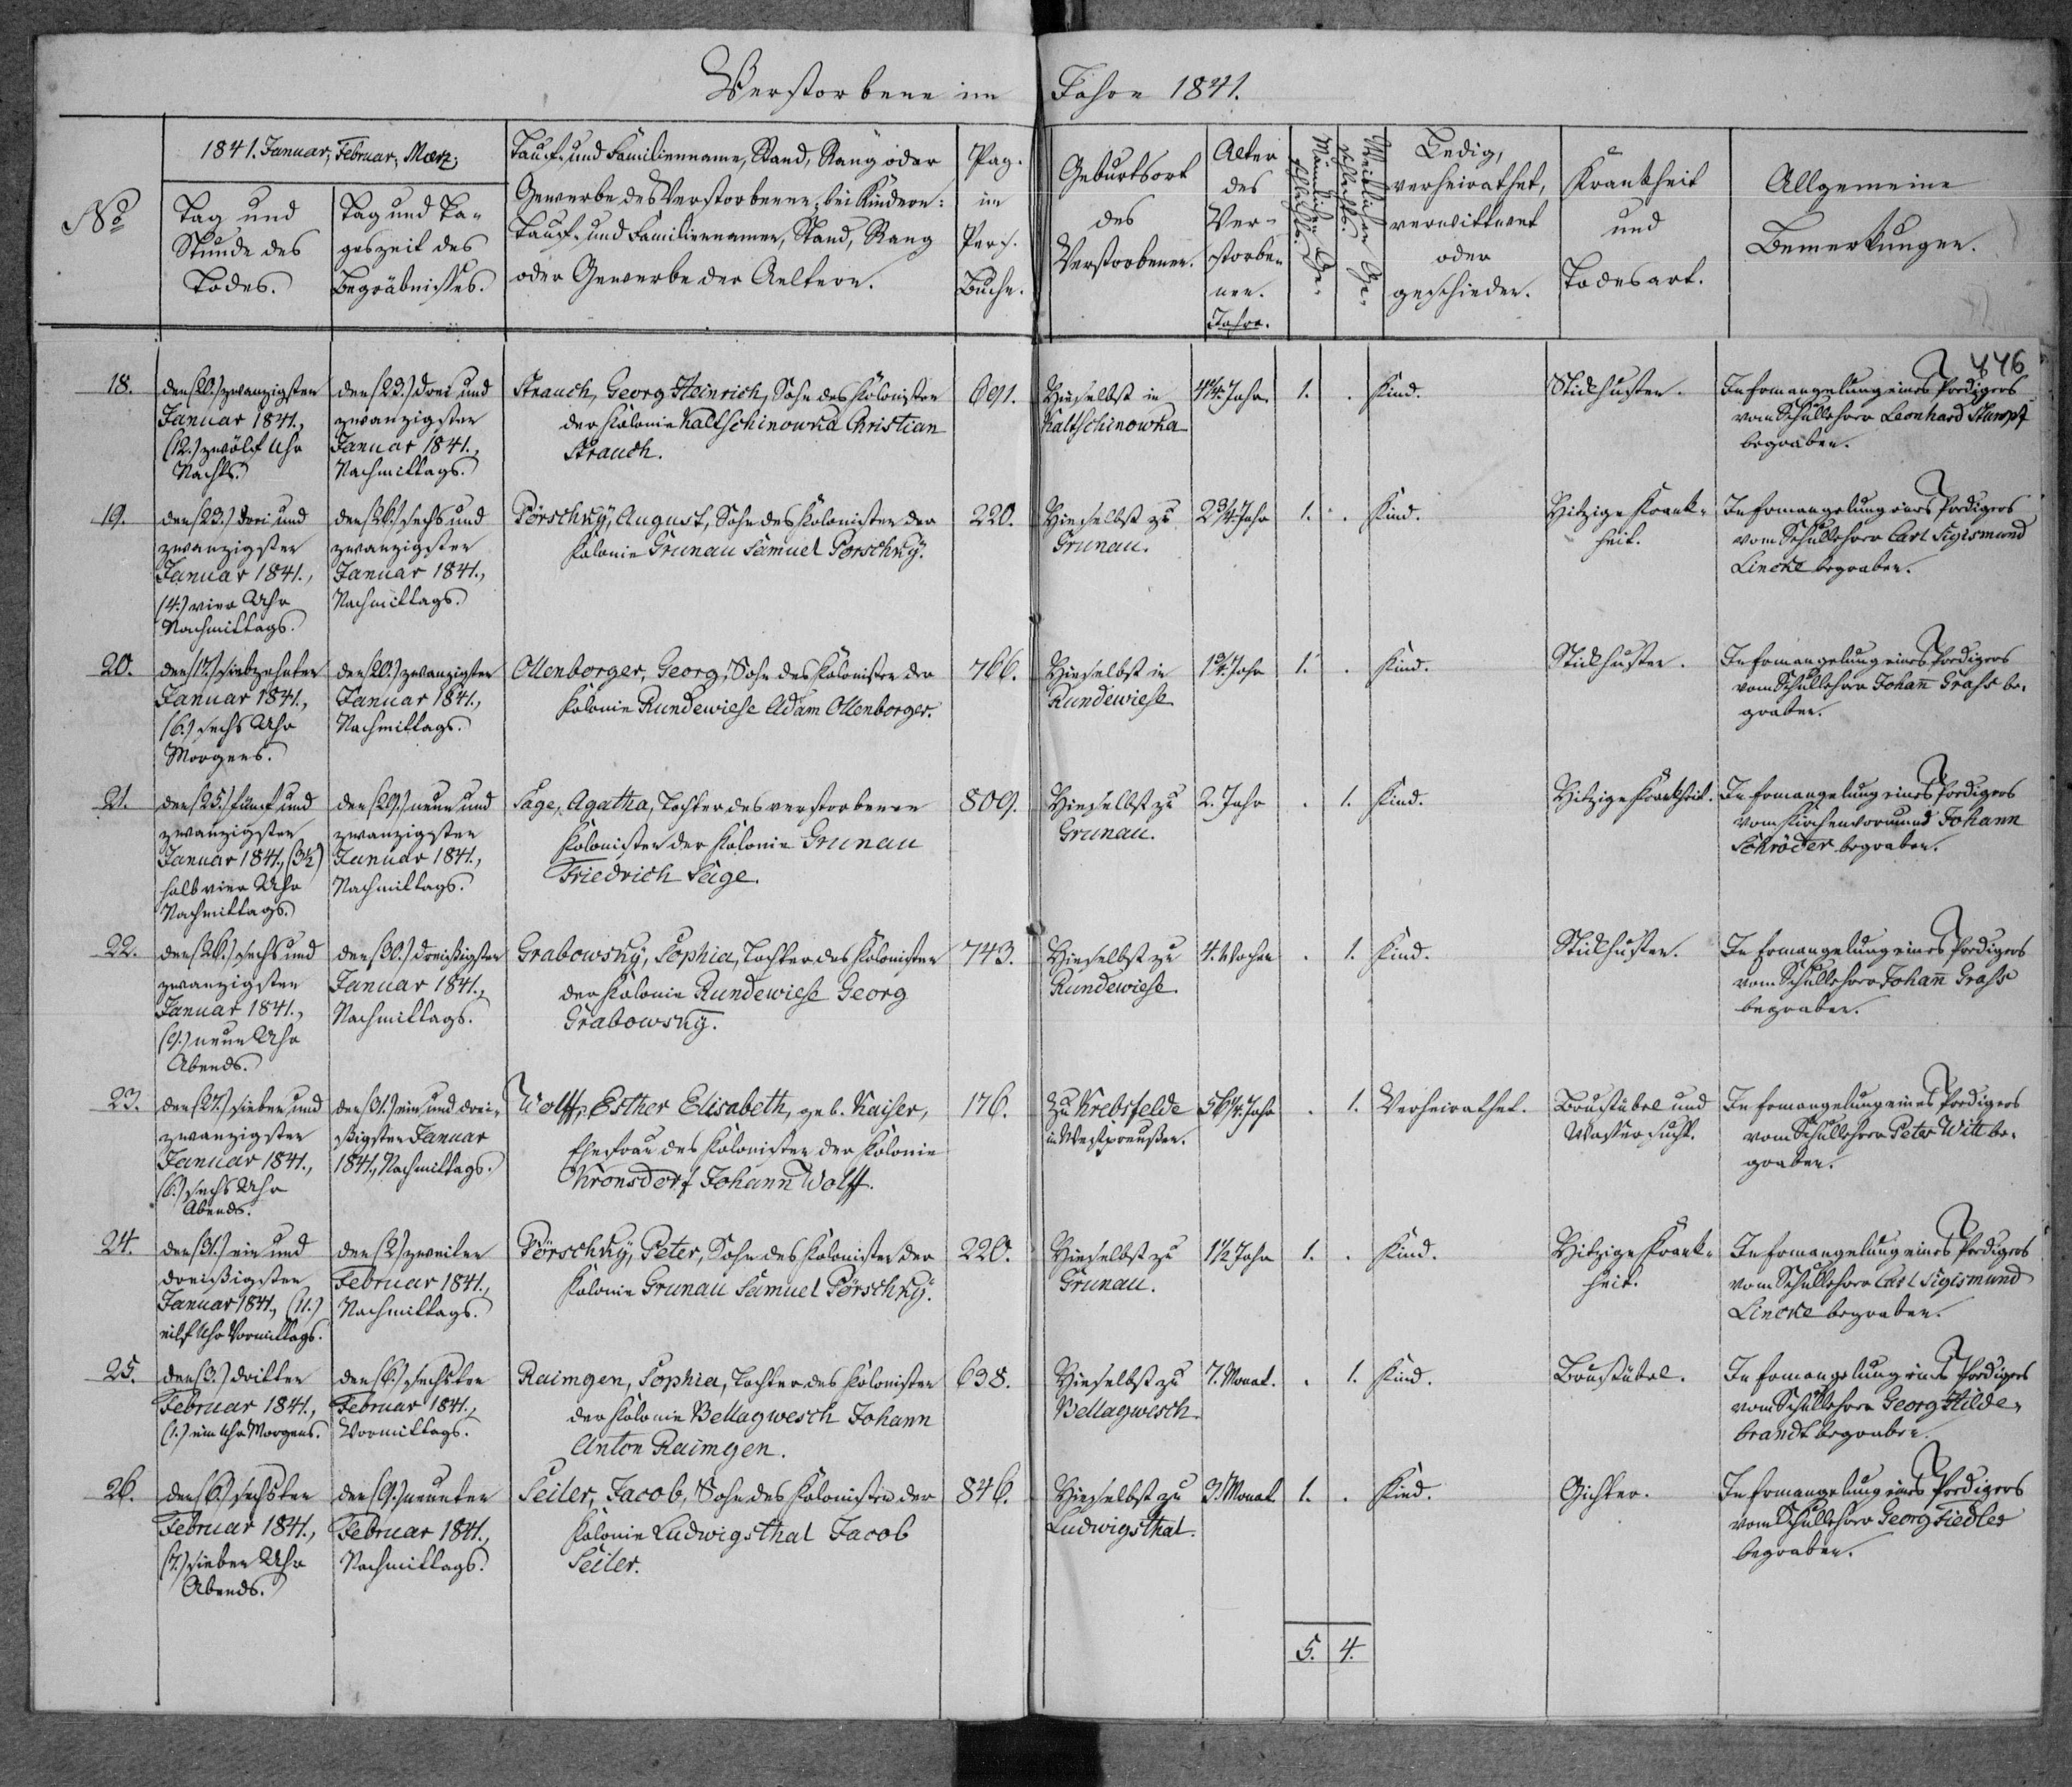 Verstorbene im Jahre 1841.
776
No
1841. Januar, Februar, Maerz,
Tag und
Stunde des
Todes.
Tag und Ta-
geszeit des
Begräbnisses.
Tauf- und Familienname, Stand, Rang oder
Gewerbe des Verstorbenen; bei Kindern:
Tauf- und Familiennamen, Stand, Rang
oder Gewerbe der Aeltern.
Pag.
im
Pers.
Buche.
Geburtsort
des
Verstorbenen.
Alter
des
Ver-
storbe-
nen.
Jahre.
Männlichen Ge-
schlechts.
Weiblichen Ge-
schlechts.
Ledig,
verheirathet,
verwittwet
oder
geschieden.
Krankheit
und
Todesart.
Allgemeine
Bemerkungen.
18.
den (20.) zwanzigsten
Januar 1841.,
(12.) zwölf Uhr
Nachts.
den (23.) drei und
zwanzigsten
Januar 1841.,
Nachmittags.
Strauch, Georg Heinrich, Sohn des Kolonisten
der Kolonie Kaltschinowka Christian
Strauch.
691.
Hieselbst in
Kaltschinowka
Jahr.
1.
.
Kind.
Stickhusten.
In Ermangelung eines Predigers
vom Schullehrer Leonhard Stumpf
begraben.
19.
den (23.) drei und
zwanzigsten
Januar 1841.,
(4.) vier Uhr
Nachmittags.
den (26.) sechs und
zwanzigsten
Januar 1841.,
Nachmittags.
Pörschky, August, Sohn des Kolonisten der
Kolonie Grunau Samuel Pörschky.
220.
Hieselbst zu
Grunau.
2 3/4. Jahr
1.
.
Kind.
Hitzige Krank-
heit.
In Ermangelung eines Predigers
vom Schullehrer Carl Sigismund
Lincke begraben.
20.
den (17.) siebzehnten
Januar 1841.,
(6.) sechs Uhr
Morgens.
den (20.) zwanzigsten
Januar 1841.,
Nachmittags.
Ollenborger, Georg, Sohn des Kolonisten der
Kolonie Rundewiese Adam Ollenborger.
766.
Hieselbst in
Rundewiese
1 3/4. Jahr
1.
.
Kind.
Stickhusten.
In Ermangelung eines Predigers
vom Schullehrer Johan̄ Grahs be-
graben.
21.
den (25.) fünf und
zwanzigsten
Januar 1841., (3 1/2)
halb vier Uhr
Nachmittags.
den (29.) neun und
zwanzigsten
Januar 1841.,
Nachmittags.
Sage, Agatha, Tochter des verstorbenen
Kolonisten der Kolonie Grunau
Friedrich Sage.
809.
Hieselbst zu
Grunau.
2. Jahr
.
1.
Kind.
Hitzige Krankheit.
In Ermangelung eines Predigers
vom Kirchenvormund Johann
Schröder begraben.
22.
den (26.) sechs und
zwanzigsten
Januar 1841.,
(9.) neun Uhr
Abends.
den (30.) dreißigsten
Januar 1841.,
Nachmittags.
Grabowsky, Sophia, Tochter des Kolonisten
der Kolonie Rundewiese Georg
Grabowsky.
743.
Hieselbst zu
Rundewiese.
4. Wochen
.
1.
Kind.
Stickhusten.
In Ermangelung eines Predigers
vom Schullehrer Johan̄ Grahs
begraben.
23.
den (27.) sieben und
zwanzigsten
Januar 1841.,
(6.) sechs Uhr
Abends.
den (31.) ein und drei-
ßigsten Januar
1841., Nachmittags.
Wolff, Esther Elisabeth, geb. Kaiser,
Ehefrau des Kolonisten der Kolonie
Kronsdorf Johann Wolff.
176.
Zu Krebsfelde
in Westpreußen.
56 1/4. Jahr
.
1.
Verheirathet.
Brustübel und
Wassersucht.
In Ermangelung eines Predigers
vom Schullehrer Peter Witt be-
graben.
24.
den (31.) ein und
dreißigsten
Januar 1841., (11.)
eilf Uhr Vormittags.
den (2.) zweiten
Februar 1841.,
Nachmittags.
Pörschky, Peter, Sohn des Kolonisten der
Kolonie Grunau Samuel Pörschky.
220.
Hieselbst zu
Grunau.
1 1/2 Jahr
1.
.
Kind.
Hitzige Krank-
heit.
In Ermangelung eines Predigers
vom Schullehrer Carl Sigismund
Lincke begraben.
25.
den (3.) dritten
Februar 1841.,
(1.) ein Uhr Morgens.
den (6.) sechsten
Februar 1841.,
Vormittags.
Raimgen, Sophia, Tochter des Kolonisten
der Kolonie Bellagwesch Johann
Anton Raimgen.
638.
Hieselbst zu
Bellagwesch.
7. Monat.
.
1.
Kind.
Brustübel.
In Ermangelung eines Predigers
vom Schullehrer Georg Hilde-
brandt begraben.
26.
den (6.) sechsten
Februar 1841.,
(7.) sieben Uhr
Abends.
den (9.) neunten
Februar 1841.,
Nachmittags.
Seiler, Jacob, Sohn des Kolonisten der
Kolonie Ludwigsthal Jacob
Seiler.
846.
Hieselbst zu
Ludwigsthal.
3. Monat.
1.
.
Kind.
Gichter.
In Ermangelung eines Predigers
vom Schullehrer Georg Fiedler
begraben.
5. 4.